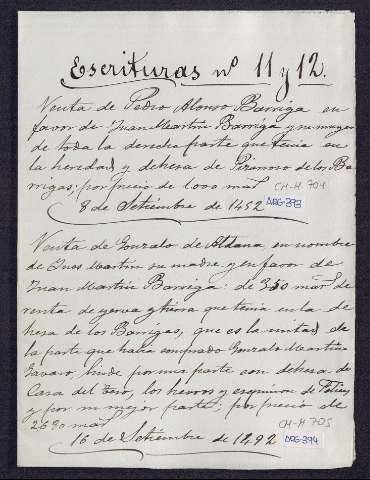 Escrituras nº 11 y 12.
Venta de Pedro Alonso Barriga en
favor de Juan Martin Barriga y su muger
de toda la derecha parte que tenia en
la heredad y dehesa de de los Ba
rrigas: por precio de 1.000 mars CH-H 704
8 de Setiembre de 1452 DDG-393
Venta de Gonzalo de Aldana en nombre
de Ines Martin su madre y en favor de
Juan Martin Barriga: de 350 mars de
renta de yerva y tierra que tenia en la de
hesa de los Barrigas, que es la mitad de
la parte que habia comprado Gonzalo Martin
linde por una parte con dehesa de
Casa del los y de
y por su mejor parte; por precio de
2690 mars CH-H 705
16 de Setiembre de 1492 DDG-394